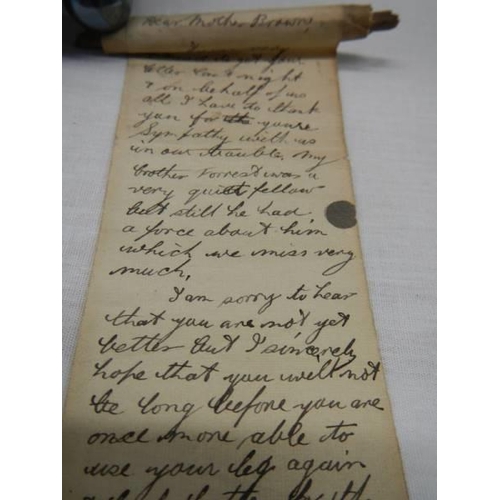 Dear Mother Brown,
I got your
letter last night
& on behalf of us
all I have to thank
you for the youre
Sympathy with us
in our trouble. My
brother Forrest was a
very quiet fellow
but still he had
a force about him
which we miss very
much.
I am sorry to hear
that you are not yet
better but I sincerely
hope that you will not
be long before you are
once more able to
use your leg again